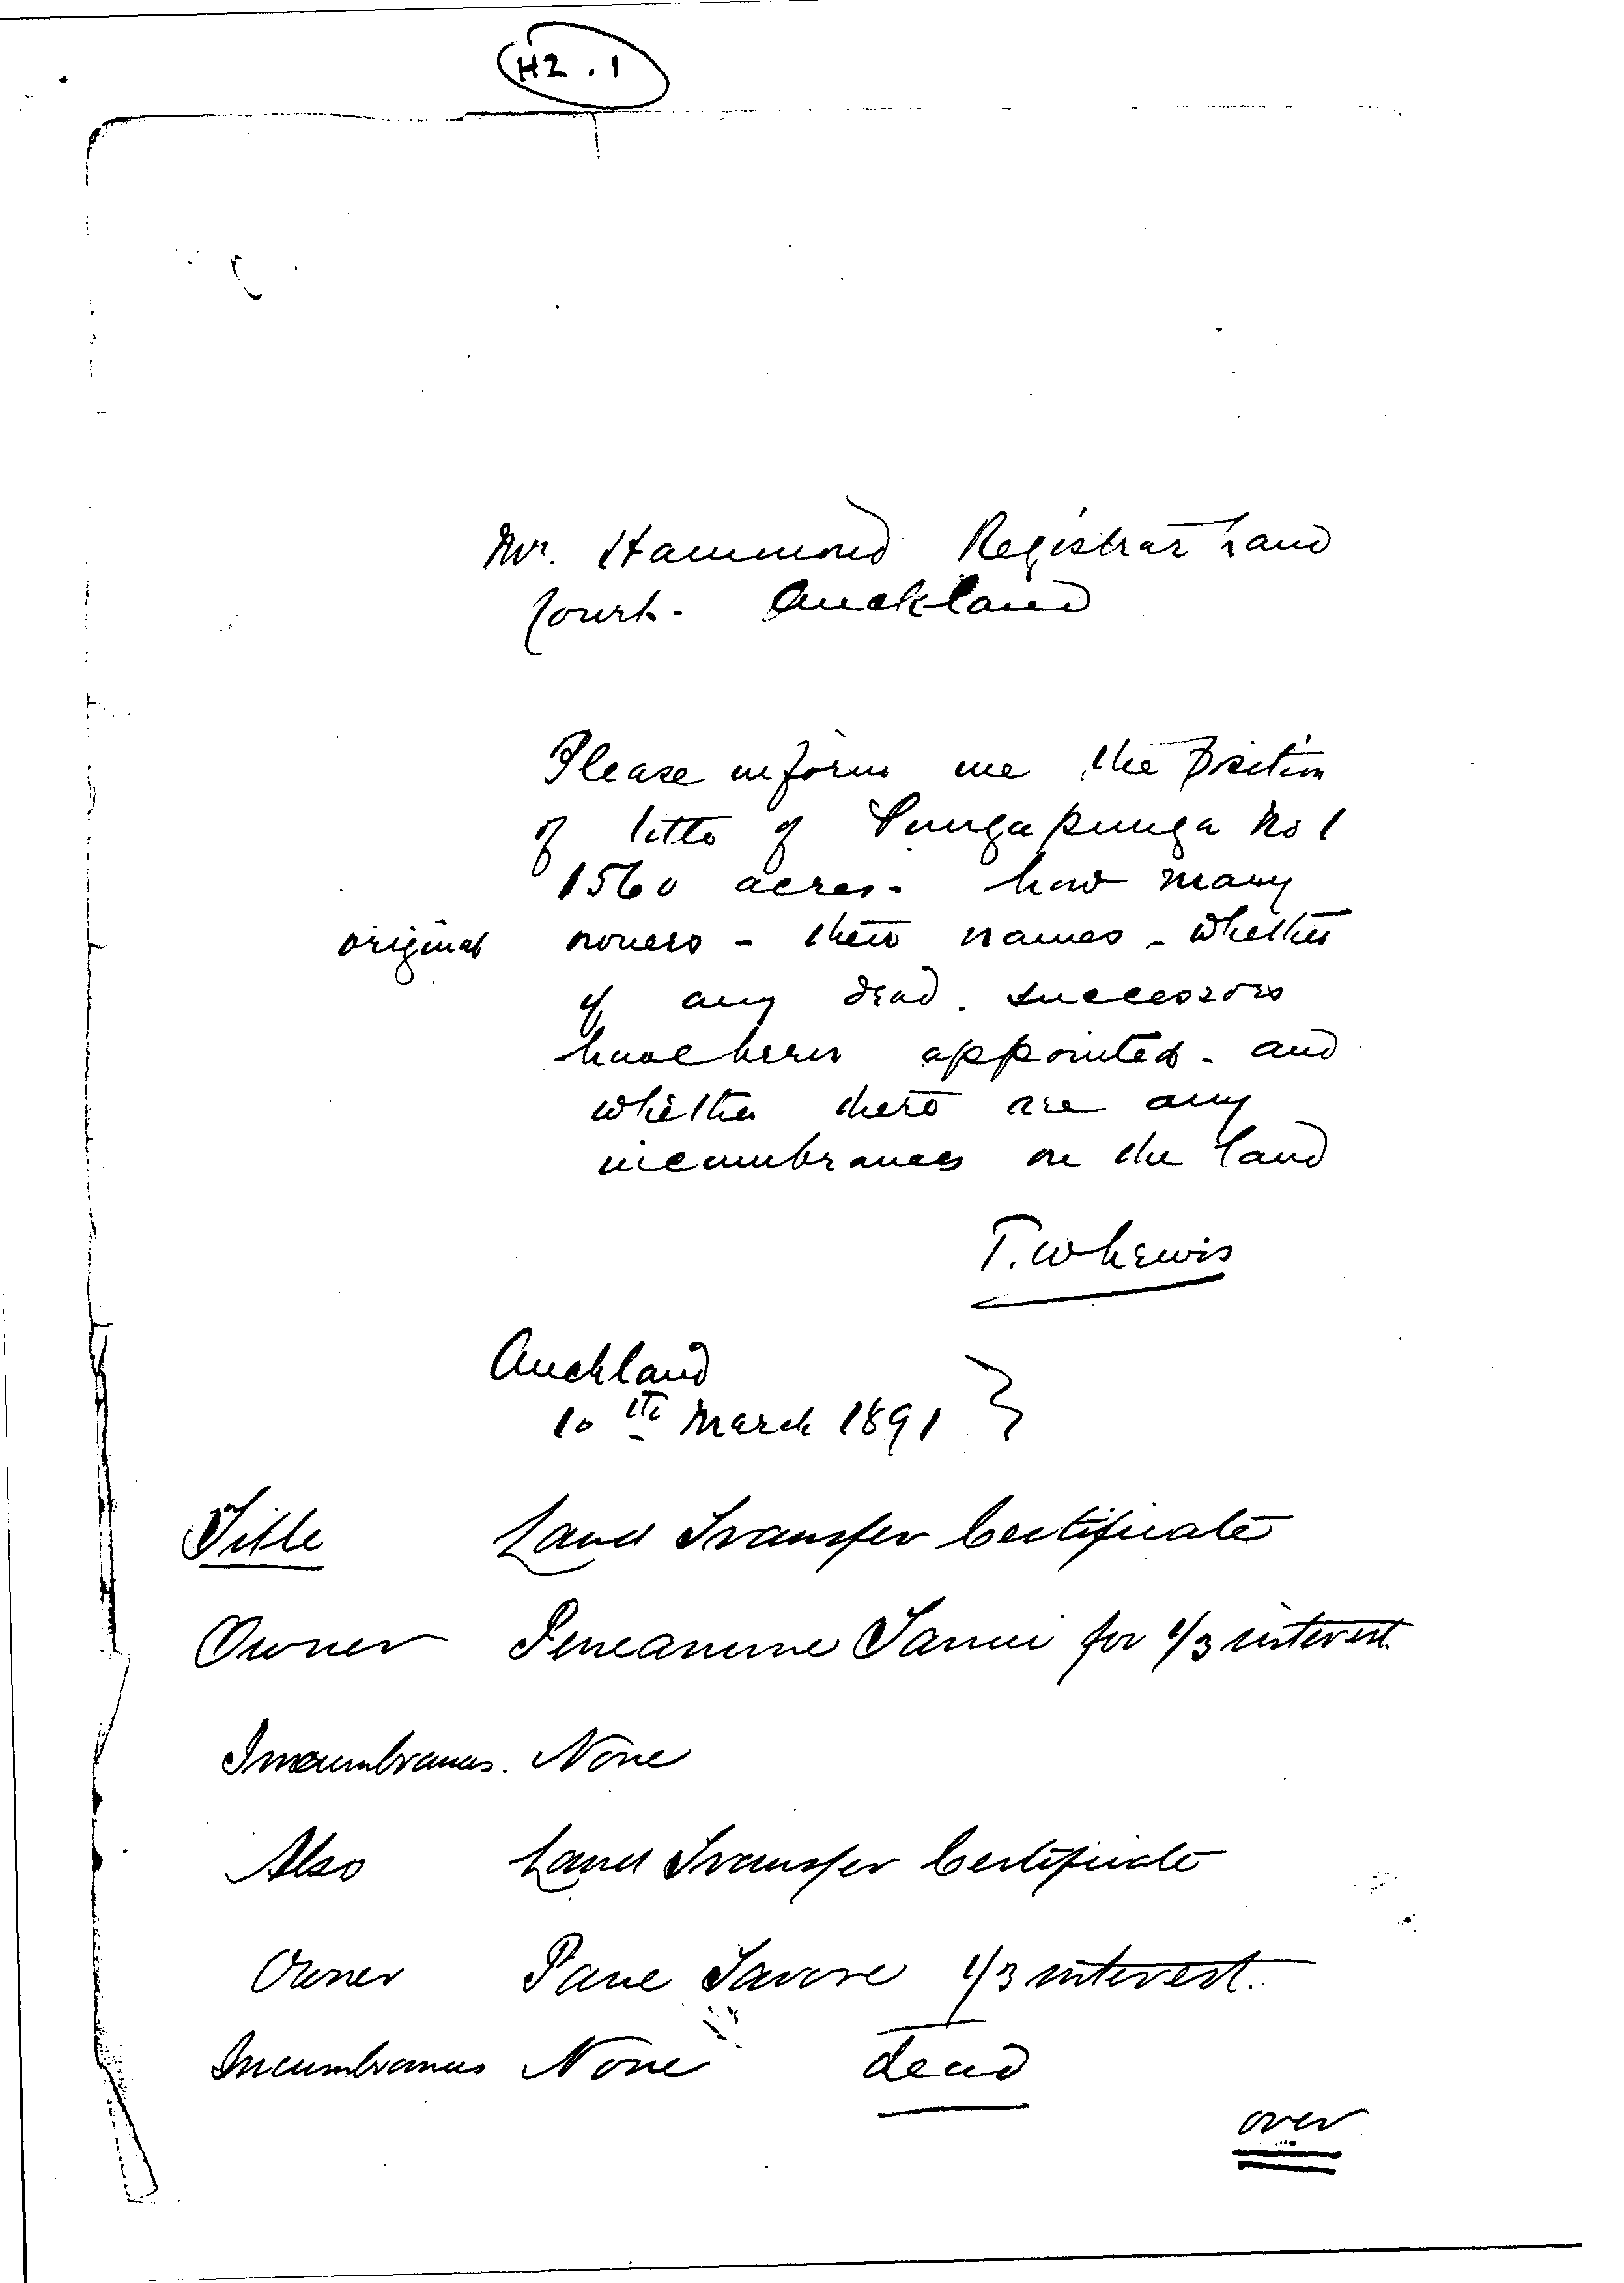 H2.1
Mr. Hammond Registrar Land
Court. Auckland
Please inform me the position
of title of Pungapunga No 1
1560 acres. how many
original owners - their names - whether
if any dead. successors
have been appointed - and
whether there are any
incumbrances on the land
T. W Lewis
Auckland
10th March 1891 }
Title Land Transfer Certificate
Owner for 1/3 interest.
Incumbrances. None
Also Land Transfer Certificate
Owner 1/3 interest.
Incumbrances None dead
over